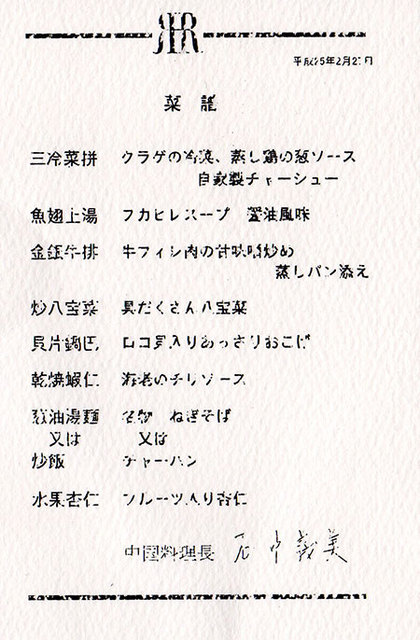 平成25年2月2 日
菜譜
三冷菜拼 クラゲの冷菜、蒸し鶏の葱ソース
自家製チャーシュー
魚翅上湯 フカヒレスープ 醤油風味
金銀牛排 牛フィレ肉の甘味噌炒め
蒸しパン添え
炒八宝菜 具だくさん八宝菜
貝片鍋巴 ロコ貝入りあっさりおこげ
乾焼蝦仁 海老のチリソース
葱油湯麺 名物 ねぎそば
又は 又は
炒飯 チャーハン
水果杏仁 フルーツ入り杏仁
中国料理長